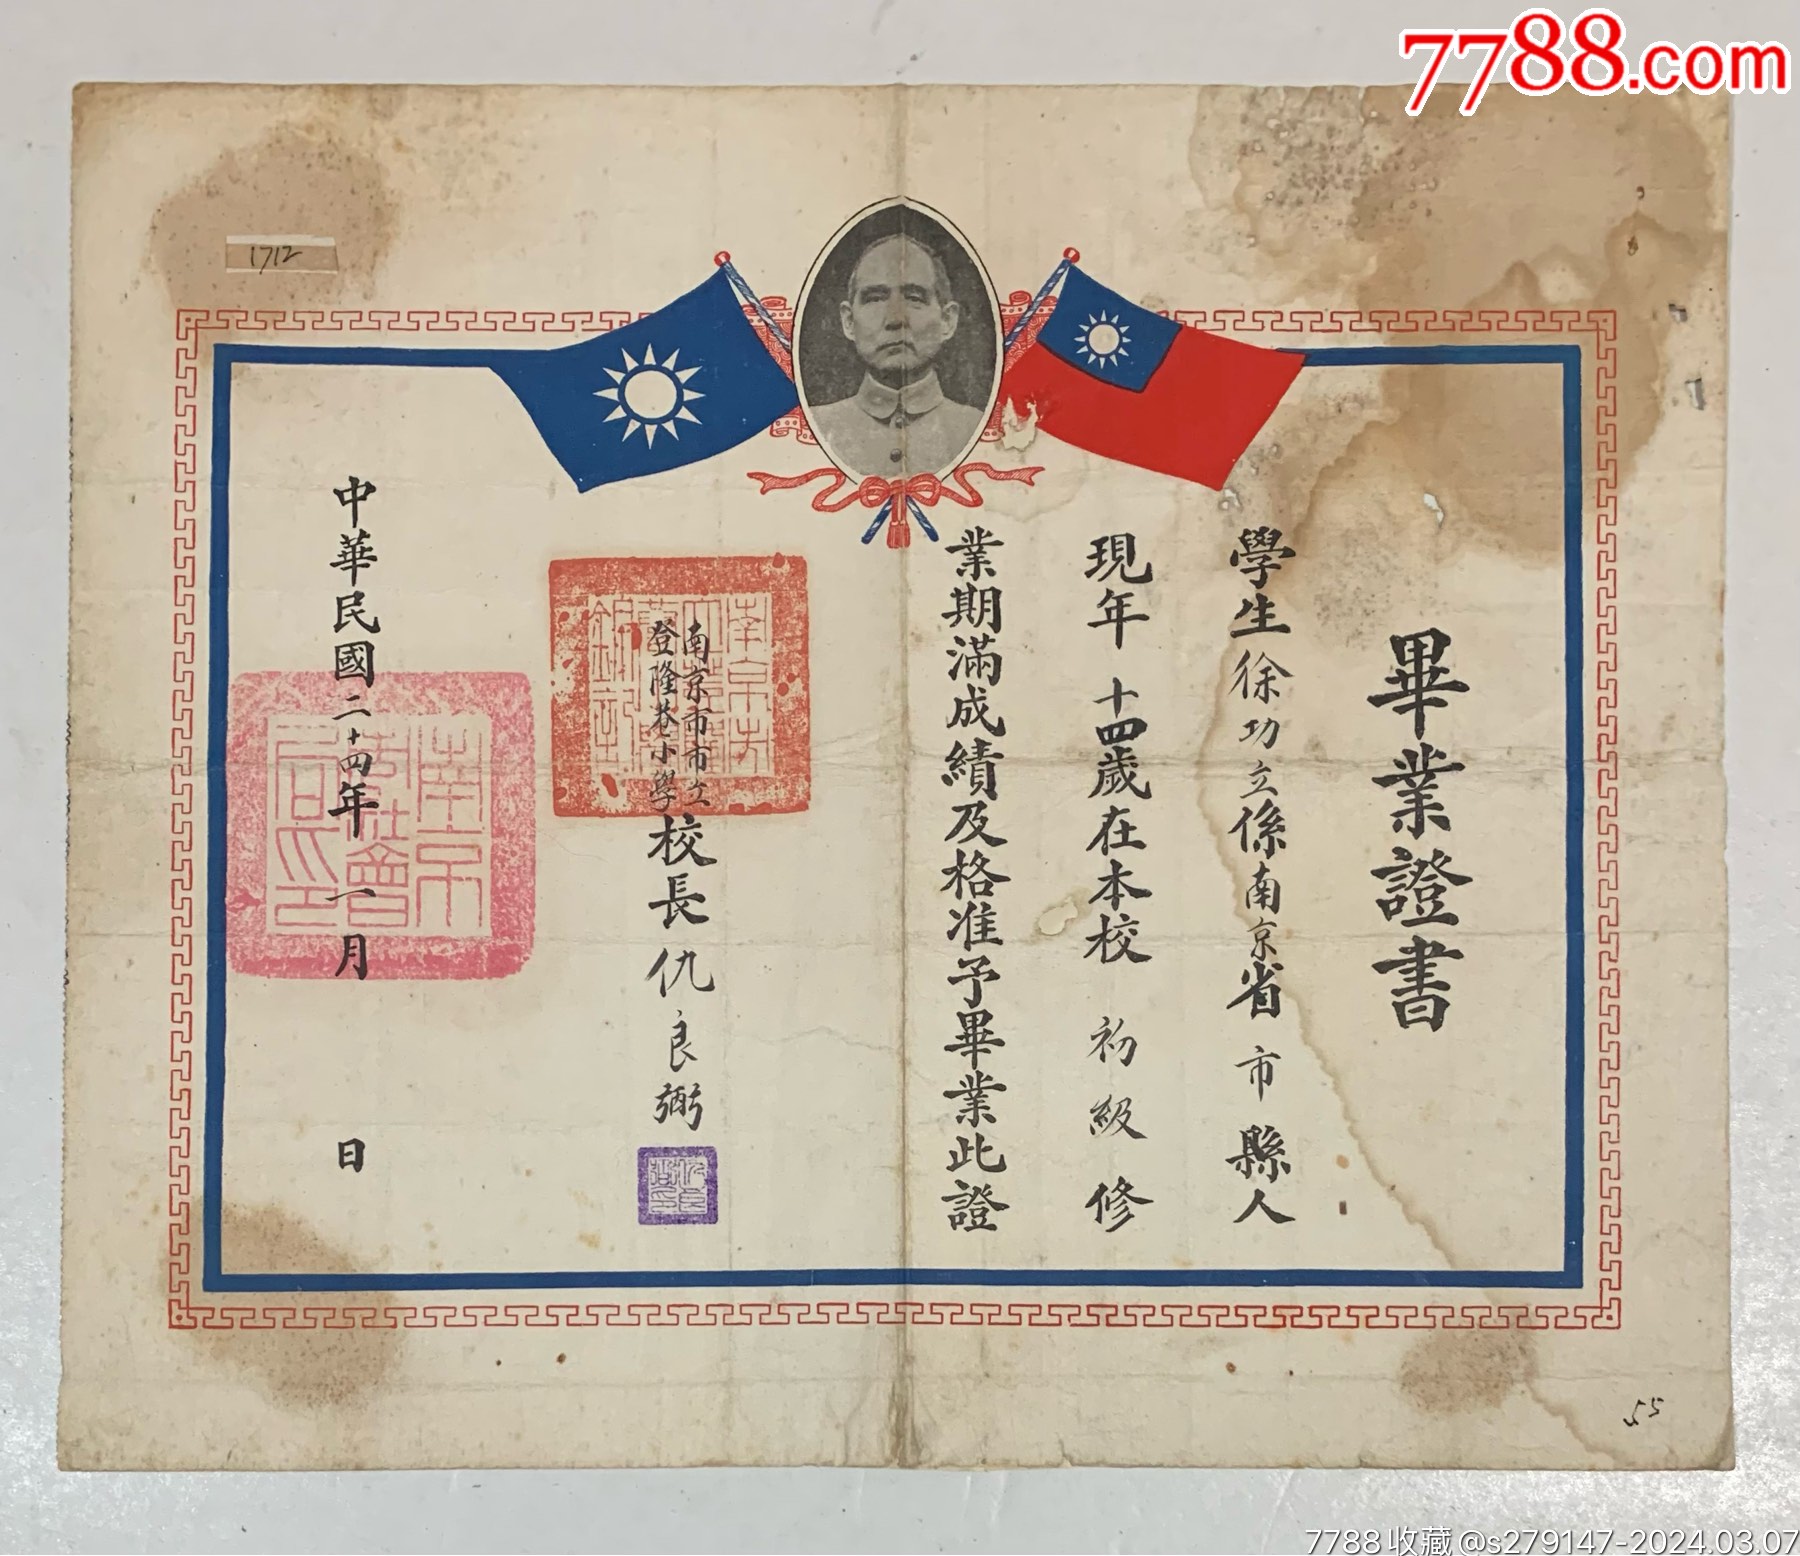 7788.com
1712
畢業證書
學生徐功立係南京省市縣人
現年十四歲在本校初級修
業期滿成績及格准予畢業此證
南京市市立
登隆巷小學
校長仇良弼
中華民國二十四年一月日
南京市社會局印
55
7788收藏@s279147-2024.03.07